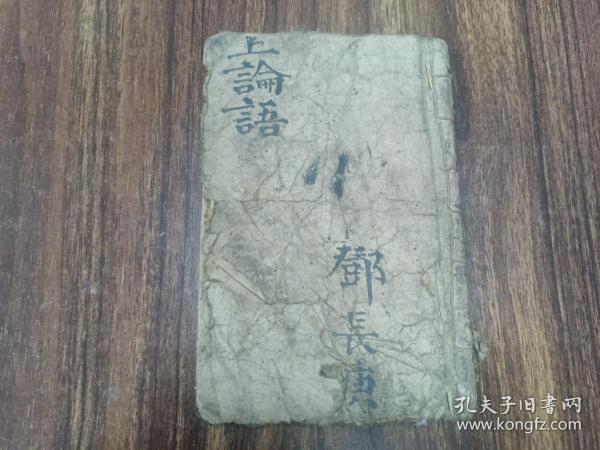 上論語
鄧長庚
孔夫子旧書网
www.kongfz.com